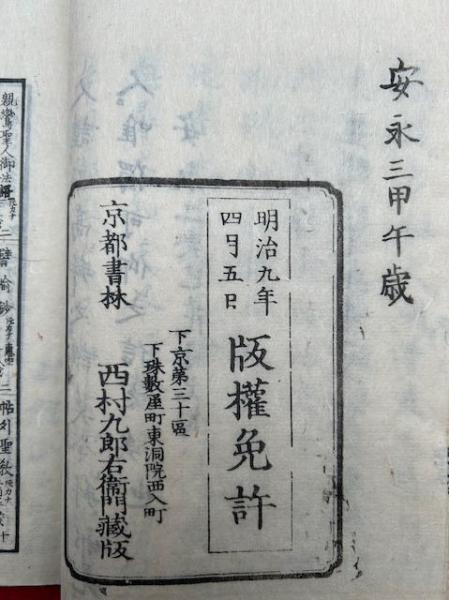 安永三甲午歳
明治九年
四月五日
版權免許
下京第三十區
下珠數屋町東洞院西入町
京都書林
西村九郎右衞門藏版
親鸞聖人御法語
二譬喩鈔
帖外聖教